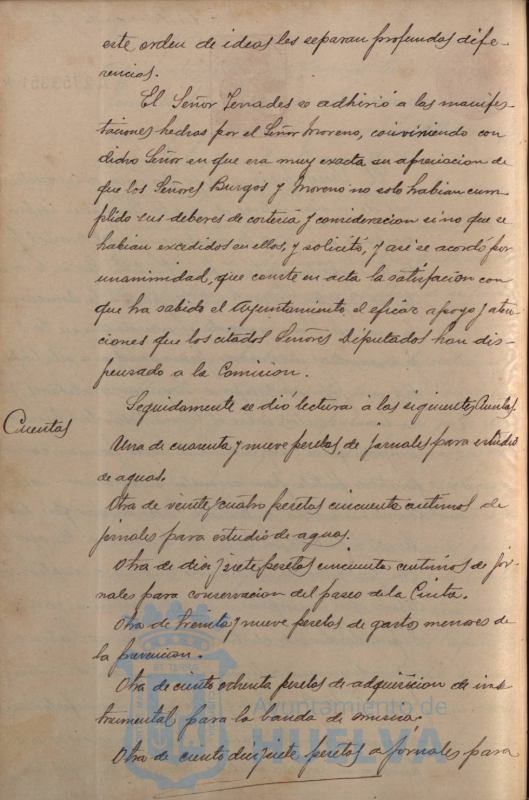 este orden de ideas les separan profundas dife-
rencias.
El Señor Terrades se adhirió a las manifes-
taciones hechas por el Señor Moreno, conviniendo con
dicho Señor en que era muy exacta su apreciacion de
que los Señores Burgos y Moreno no solo habian cum-
plido sus deberes de cortesia y consideracion sino que se
habian excedidos en ellos, y solicitó, y asi se acordó por
unanimidad, que conste en acta la satisfacion con
que ha sabido el Ayuntamiento, el eficaz apoyo y aten-
ciones que los citados Señores Diputados han dis-
pensado a la Comision.
Cuentas
Seguidamente se dió lectura á las siguientes Cuentas.
Una de cuarenta y nueve pesetas, de jornales para estudio
de aguas.
Otra de veinte y cuatro pesetas cincuenta centimos de
jornales para estudio de aguas.
Otra de diez y siete pesetas cincuenta centimos de jor-
nales para conservacion del paseo de la Cinta.
Otra de treinta y nueve pesetas de gastos menores de
la prevencion.
Otra de ciento ochenta pesetas de adquisicion de ins-
trumental para la banda de musica.
Otra de ciento diez y siete pesetas a jornales para
Ayuntamiento de
HUELVA